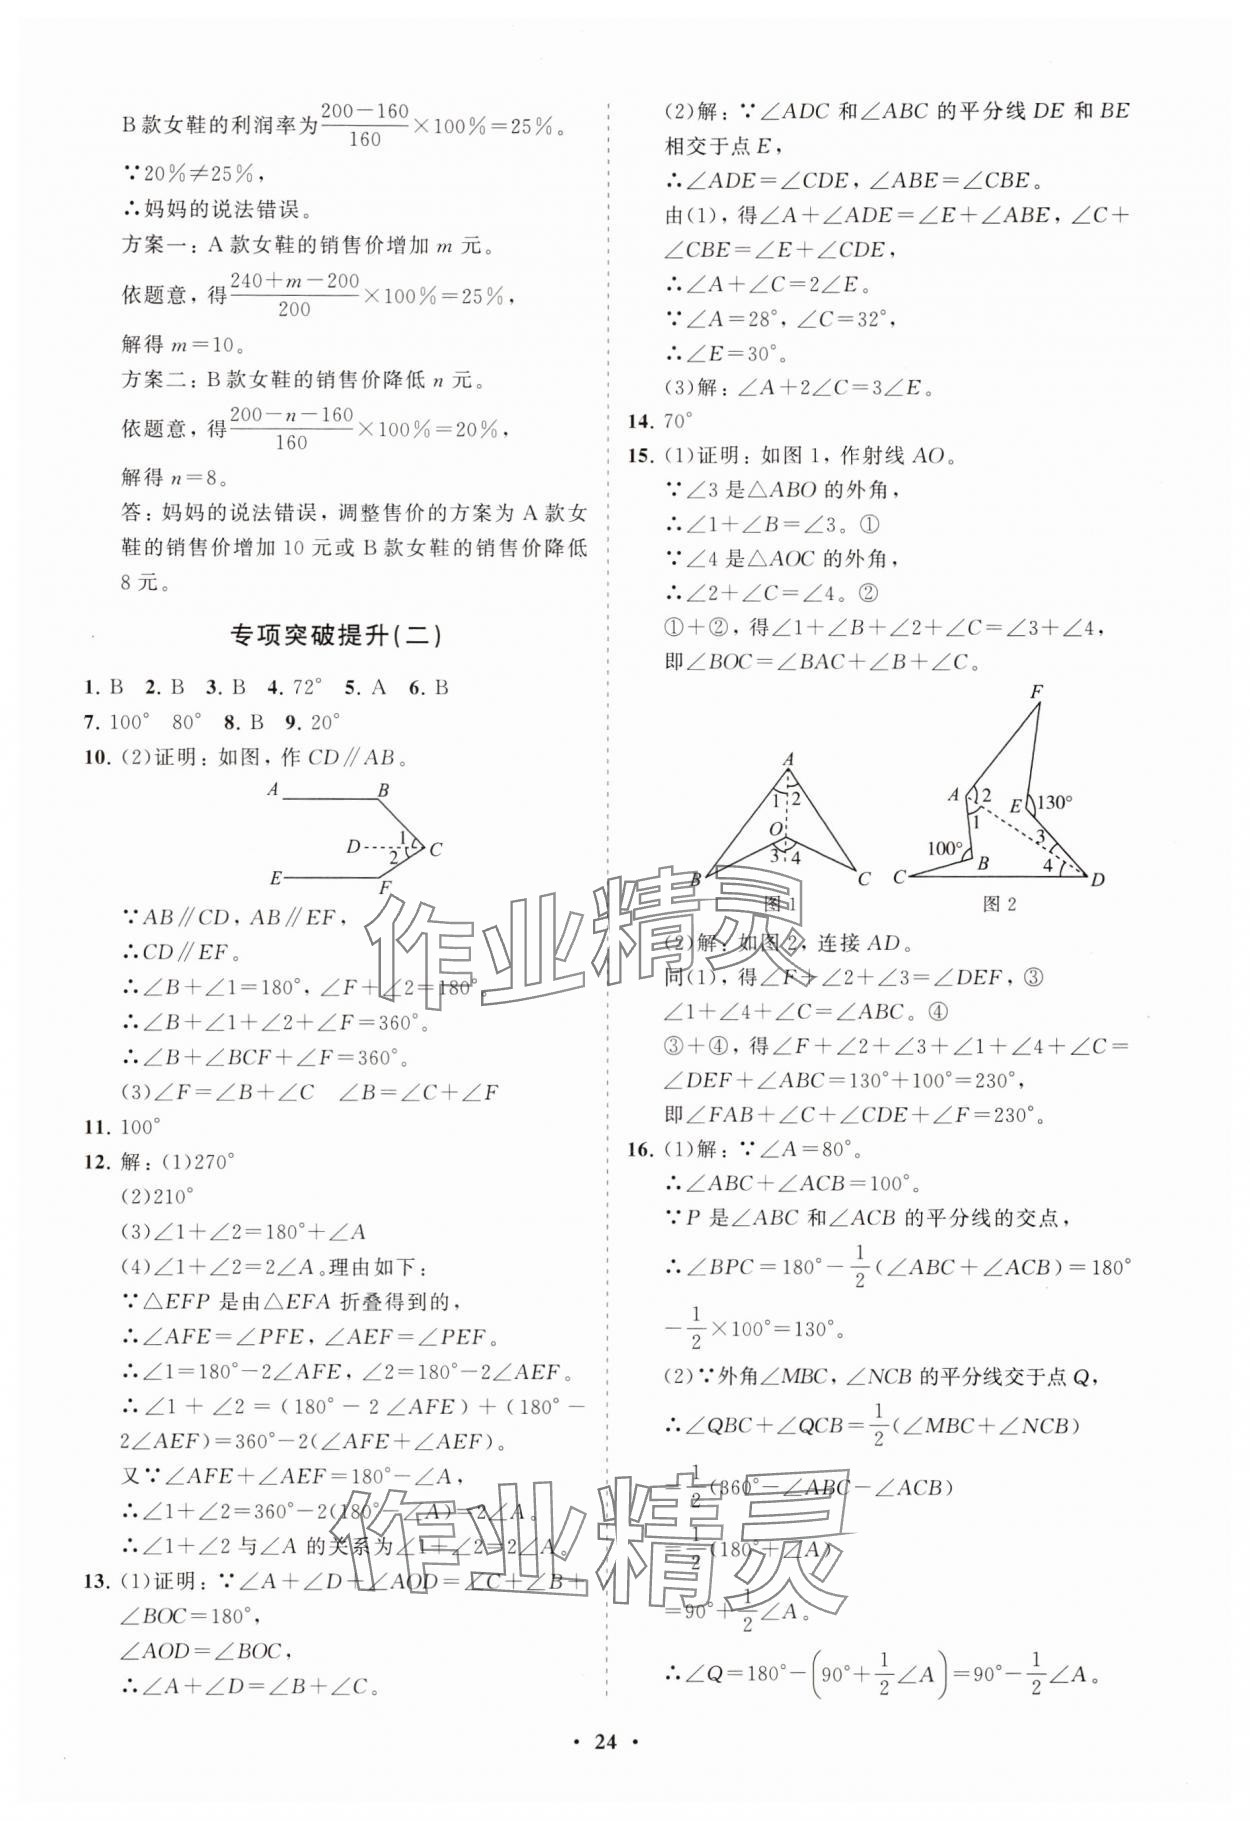 B款女鞋的利润率为\frac{200-160}{160}×100%=25%。
∵20%≠25%,
∴妈妈的说法错误。
方案一：A款女鞋的销售价增加 m 元。
依题意，得\frac{240+m-200}{200}×100%=25%,
解得 m=10。
方案二：B款女鞋的销售价降低 n 元。
依题意，得\frac{200-n-160}{160}×100%=20%,
解得 n=8。
答：妈妈的说法错误，调整售价的方案为 A 款女
鞋的销售价增加 10 元或 B 款女鞋的销售价降低
8 元。
专项突破提升(二)
1. B 2. B 3. B 4. 72° 5. A 6. B
7. 100° 80° 8. B 9. 20°
10. (2)证明：如图，作 CD∥AB。
A B
D 1 2 C
E F
∵AB∥CD, AB∥EF,
∴CD∥EF。
∴∠B+∠1=180°, ∠F+∠2=180°。
∴∠B+∠1+∠2+∠F=360°。
∴∠B+∠BCF+∠F=360°。
(3)∠F=∠B+∠C ∠B=∠C+∠F
11. 100°
12. 解：(1)270°
(2)210°
(3)∠1+∠2=180°+∠A
(4)∠1+∠2=2∠A。理由如下：
∵△EFP 是由△EFA 折叠得到的，
∴∠AFE=∠PFE, ∠AEF=∠PEF。
∴∠1=180°-2∠AFE, ∠2=180°-2∠AEF。
∴∠1+∠2=(180°-2∠AFE)+(180°-
2∠AEF)=360°-2(∠AFE+∠AEF)。
又∵∠AFE+∠AEF=180°-∠A,
∴∠1+∠2=360°-2(180°-∠A)=2∠A。
∴∠1+∠2 与∠A 的关系为∠1+∠2=2∠A。
13. (1)证明：∵∠A+∠D+∠AOD=∠C+∠B+
∠BOC=180°,
∠AOD=∠BOC,
∴∠A+∠D=∠B+∠C。
(2)解：∵∠ADC 和∠ABC 的平分线 DE 和 BE
相交于点 E,
∴∠ADE=∠CDE, ∠ABE=∠CBE。
由(1), 得∠A+∠ADE=∠E+∠ABE, ∠C+
∠CBE=∠E+∠CDE,
∴∠A+∠C=2∠E。
∵∠A=28°, ∠C=32°,
∴∠E=30°。
(3)解：∠A+2∠C=3∠E。
14. 70°
15. (1)证明：如图 1，作射线 AO。
∵∠3 是△ABO 的外角，
∴∠1+∠B=∠3。①
∵∠4 是△AOC 的外角，
∴∠2+∠C=∠4。②
①+②，得∠1+∠B+∠2+∠C=∠3+∠4,
即∠BOC=∠BAC+∠B+∠C。
A 1 2 O 3 4 B C
图 1
F A 2 1 E 130° 3 100° B 4 C D
图 2
(2)解：如图 2，连接 AD。
同(1), 得∠F+∠2+∠3=∠DEF, ③
∠1+∠4+∠C=∠ABC。④
③+④，得∠F+∠2+∠3+∠1+∠4+∠C=
∠DEF+∠ABC=130°+100°=230°,
即∠FAB+∠C+∠CDE+∠F=230°。
16. (1)解：∵∠A=80°。
∴∠ABC+∠ACB=100°。
∵P 是∠ABC 和∠ACB 的平分线的交点，
∴∠BPC=180°-\frac{1}{2}(∠ABC+∠ACB)=180°
-\frac{1}{2}×100°=130°。
(2)∵外角∠MBC, ∠NCB 的平分线交于点 Q,
∴∠QBC+∠QCB=\frac{1}{2}(∠MBC+∠NCB)
=\frac{1}{2}(360°-∠ABC-∠ACB)
=\frac{1}{2}(180°+∠A)
=90°+\frac{1}{2}∠A。
∴∠Q=180°-(90°+\frac{1}{2}∠A)=90°-\frac{1}{2}∠A。
作业精灵
作业精灵
• 24 •